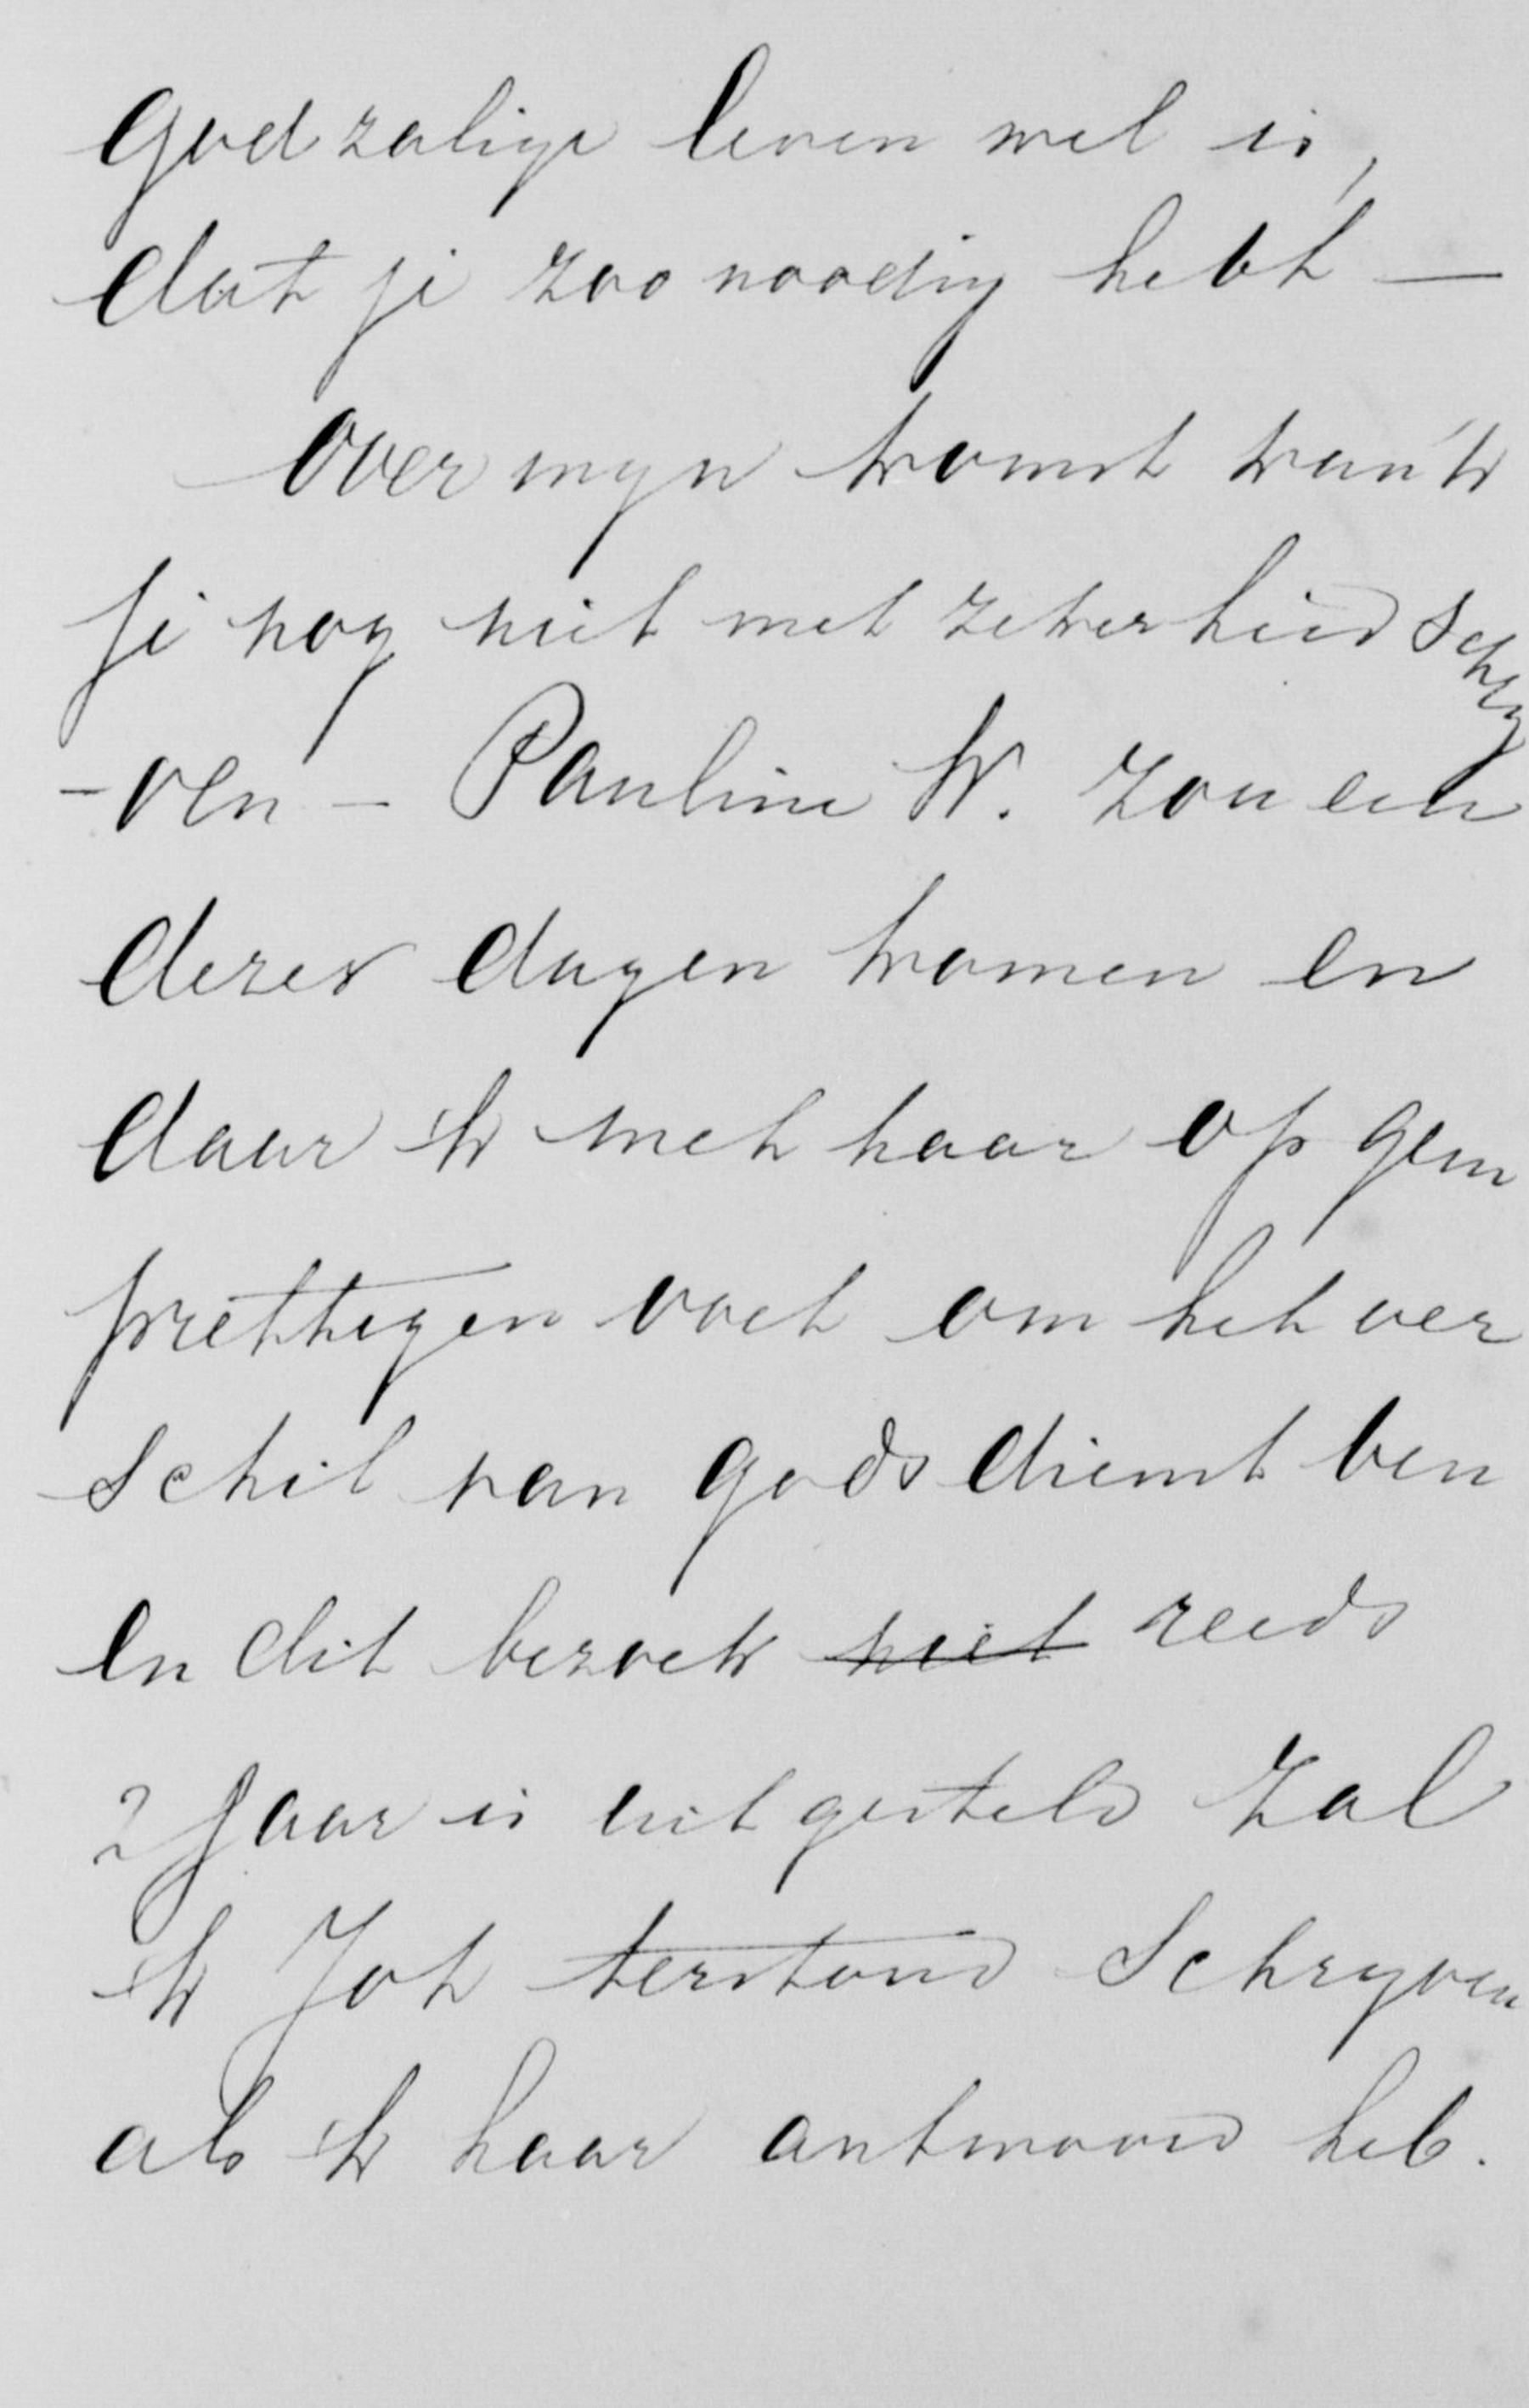 godzalige leven wel is,
dat je zoo noodig hebt —
Over myn komst kan 'k
je nog niet met zekerheid schry
- ven - Pauline W. zou een
dezer dagen komen en
daar ik met haar op geen
prettigen voet om het ver
schil van godsdienst ben
en dit bezoek niet reeds
2 jaar is uitgesteld zal
ik Joh terstond schryven
als ik haar antwoord heb.